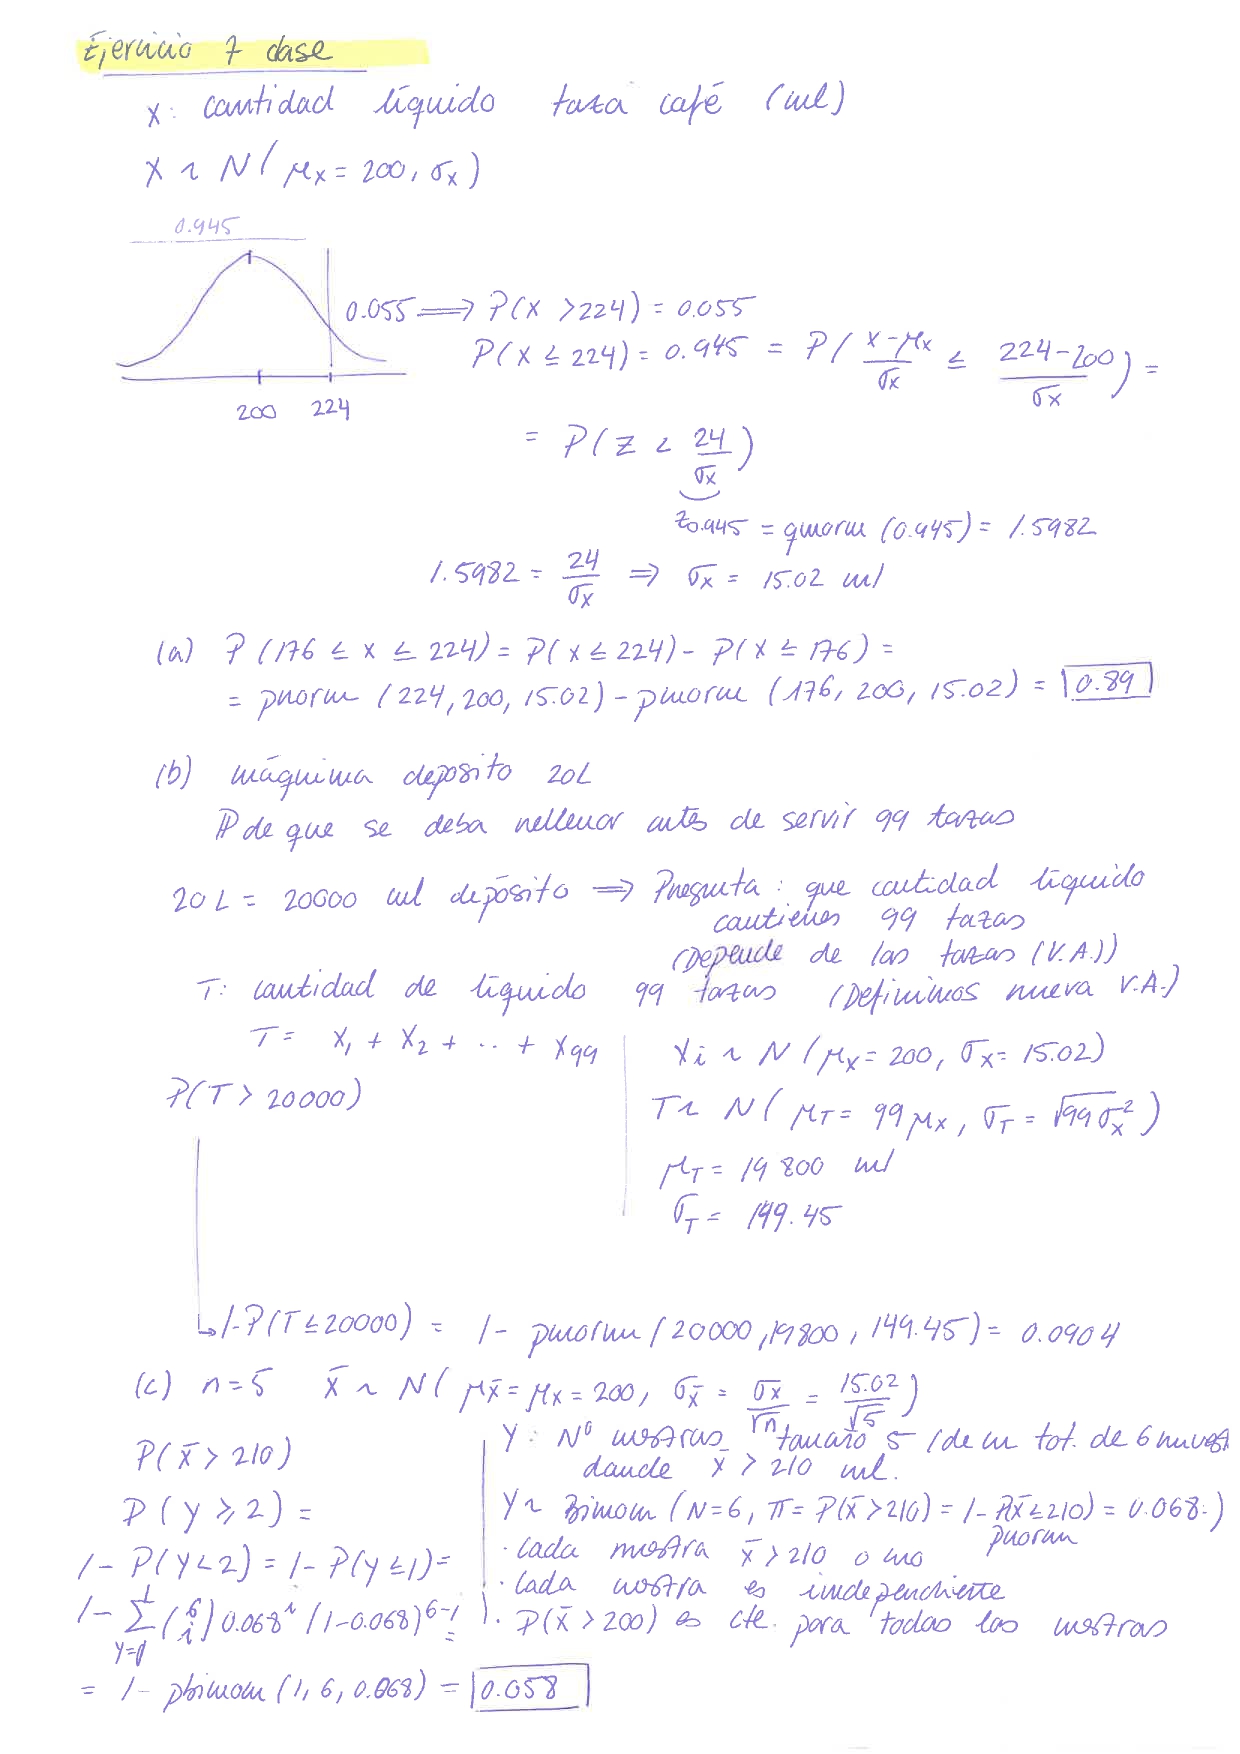 Ejercicio 7 clase
X: cantidad líquido taza café (ml)
X ~ N( μx = 200, σx )
0.945
0.055 ⟹ P(X > 224) = 0.055
P(X ≤ 224) = 0.945 = P( (x-μx)/σx ≤ (224-200)/σx ) =
200 224
= P( Z < 24/σx )
z0.945 = qnorm (0.945) = 1.5982
1.5982 = 24/σx ⟹ σx = 15.02 ml
(a) P (176 ≤ x ≤ 224) = P(x ≤ 224) - P(x ≤ 176) =
= pnorm (224, 200, 15.02) - pnorm (176, 200, 15.02) = 0.89
(b) máquima deposito 20L
P de que se deba rellenar antes de servir 99 tazas
20 L = 20000 ml depósito ⟹ Pregunta: que cantidad líquido
contienes 99 tazas
(Depende de las tazas (V.A.))
T: cantidad de líquido 99 tazas (Definimos nueva V.A.)
T = X1 + X2 + .. + X99
Xi ~ N ( μx = 200, σx = 15.02)
P(T > 20000)
T ~ N ( μT = 99 μx, σT = √(99 σx²) )
μT = 19 800 ml
σT = 149.45
↳ 1-P(T ≤ 20000) = 1- pnorm (20000, 19800, 149.45) = 0.0904
(c) n=5 x̄ ~ N( μx̄ = μx = 200, σx̄ = σx/√n = 15.02/√5 )
P(x̄ > 210)
P (y ≥ 2) =
1 - P(y < 2) = 1 - P(y ≤ 1) =
1 - ∑ (6 i) 0.068^i (1-0.068)^6-i
y=0
Y: Nº mostras tamaño 5 (de un tot. de 6 muest
dande x̄ > 210 ml.
Y ~ Binom (N=6, π = P(x̄ > 210) = 1- P(x̄ ≤ 210) = 0.068.)
pnorm
· Cada mostra x̄ > 210 o no
· Cada mostra es independiente
· P(x̄ > 200) es cte. para todas las mostras
= 1 - pbinom (1, 6, 0.068) = 0.058